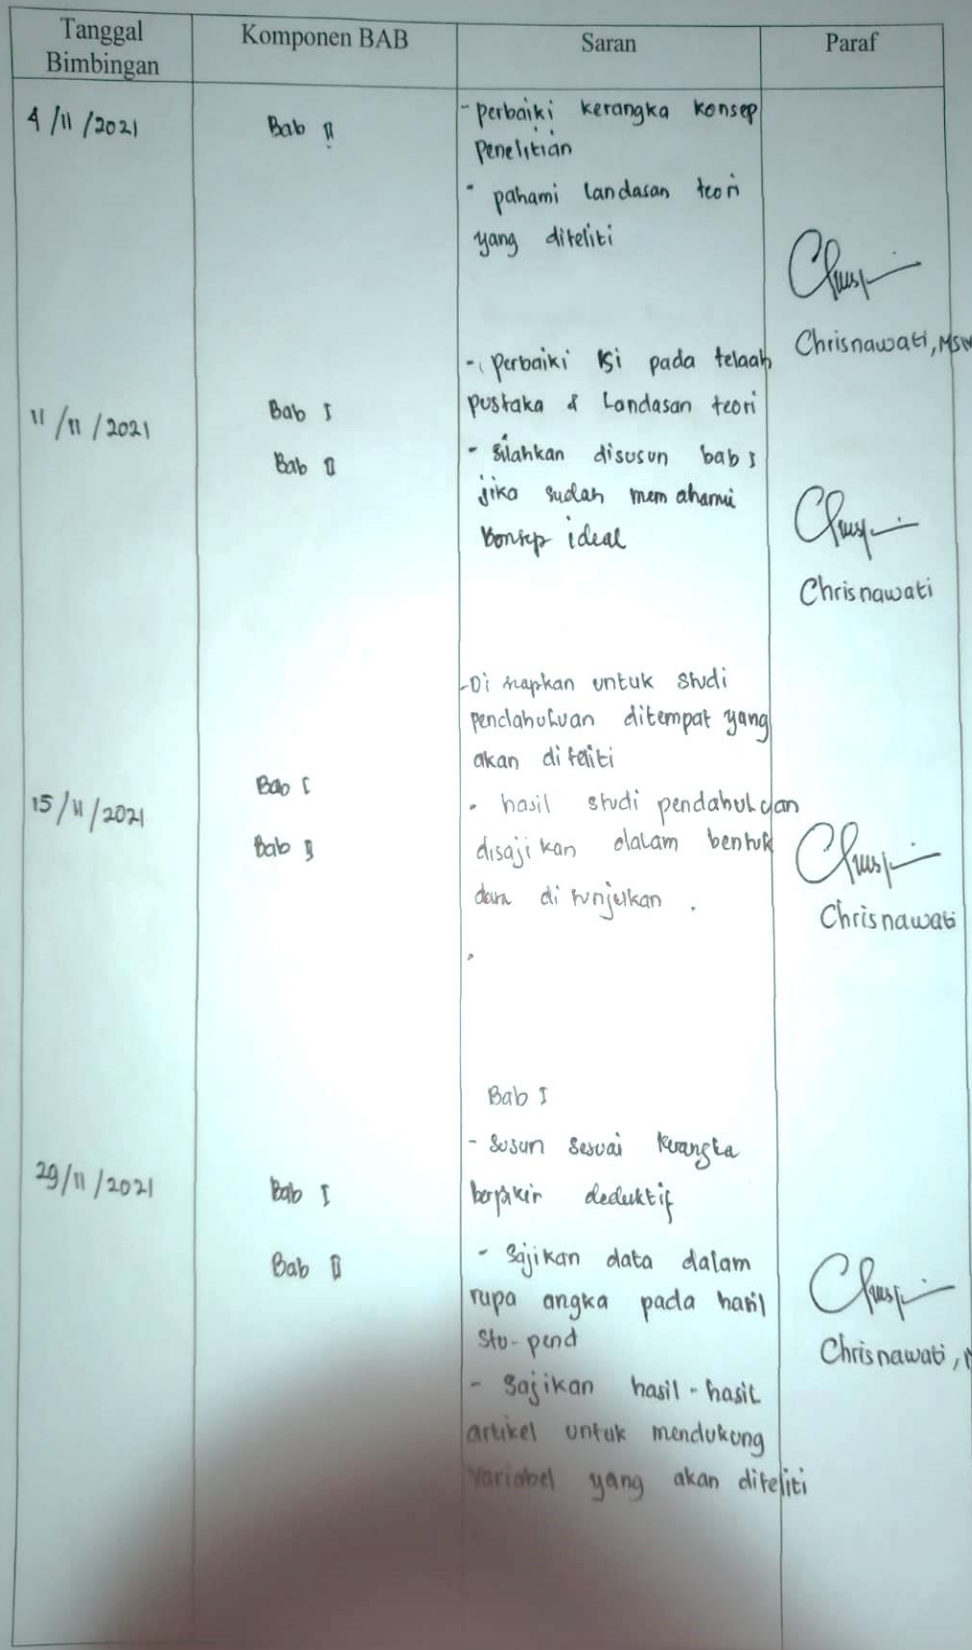 Tanggal Bimbingan
Komponen BAB
Saran
Paraf
4/11/2021
Bab II
- perbaiki kerangka konsep
penelitian
- pahami landasan teori
yang diteliti
Chrisnawati, MSN
11/11/2021
Bab I
Bab II
- Perbaiki isi pada telaah
pustaka & Landasan teori
- silahkan disusun bab I
jika sudah memahami
konsep ideal
Chrisnawati
15/11/2021
Bab I
Bab II
- Di siapkan untuk studi
pendahuluan ditempat yang
akan diteliti
- hasil studi pendahuluan
disajikan dalam bentuk
di tunjukkan.
Chrisnawati
29/11/2021
Bab I
Bab II
Bab I
- Susun sesuai kerangka
berpikir deduktif
- Sajikan data dalam
rupa angka pada hasil
Stu-pend
- Sajikan hasil-hasil
artikel untuk mendukung
variabel yang akan diteliti
Chrisnawati,